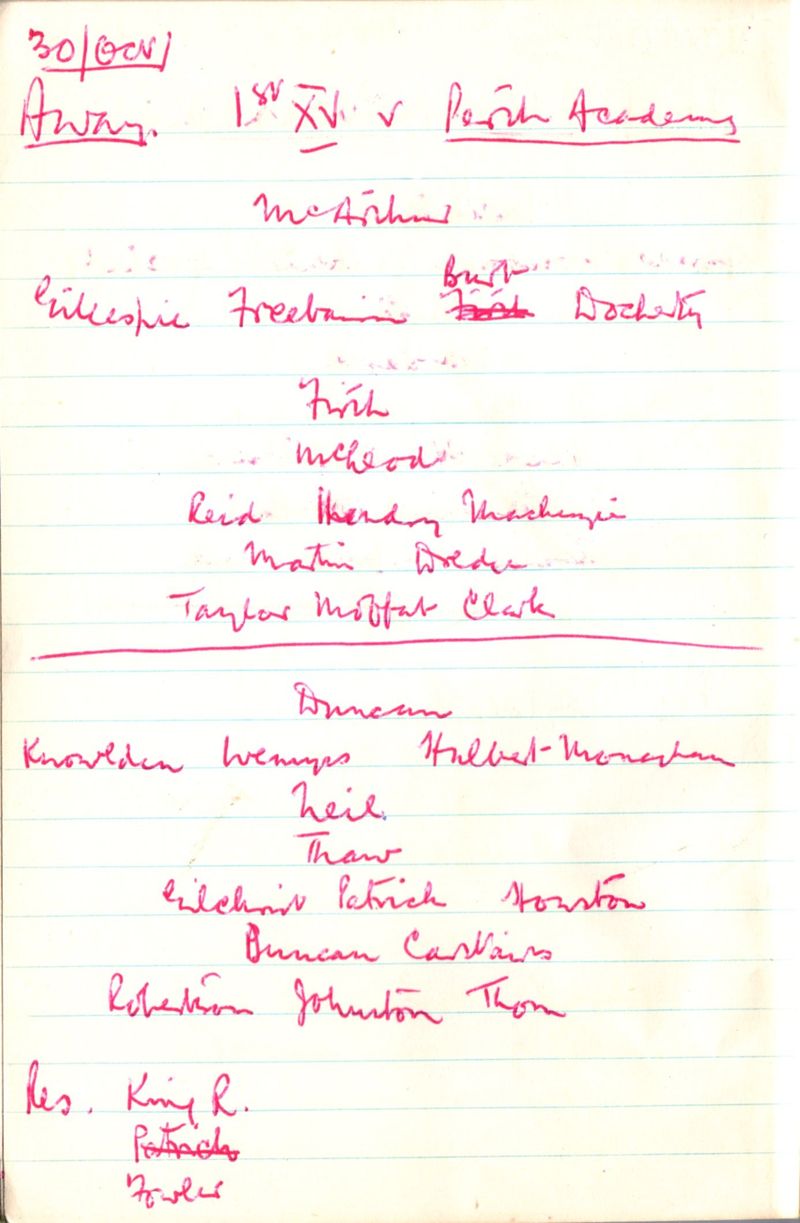 30/Oct/
Away. 1st XV. v Perth Academy
McArthur
Burt
Gillespie Freebairn Firth Docherty
Firth
McLeod
Reid Hendry Mackenzie
Martin
Taylor Moffat Clark
Duncan
Knowlden Wemyss Hulbert-Monaghan
Neil.
Thaw
Gilchrist Patrick Houston
Duncan Carstairs
Robertson Johnston Thom
Res. King R.
Patrick
Fowler